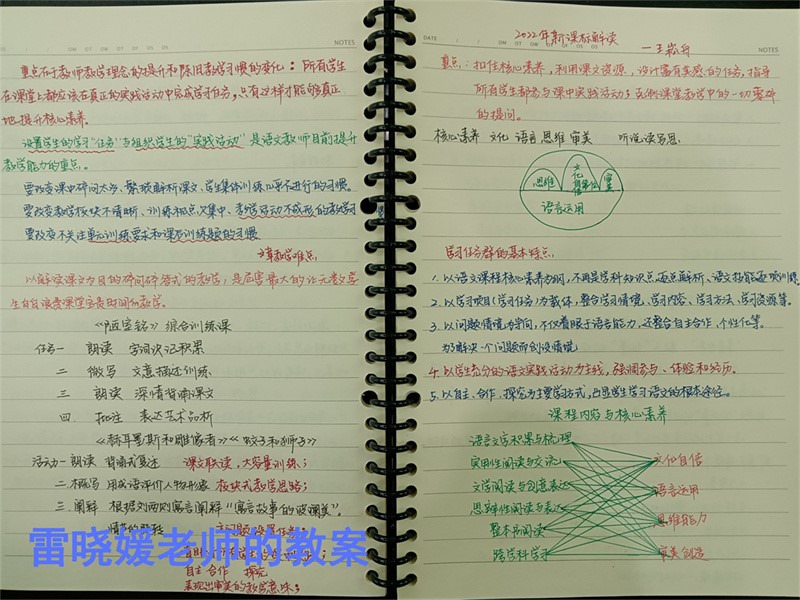 DATE
NOTES
重点在于教师教学理念的提升和陈旧教学习惯的变化：所有学生
在课堂上都应该在真正的实践活动中完成学习任务，只有这样才能够真正
地提升核心素养。
设置学生的学习“任务”与组织学生的“实践活动”是语文教师目前提升
教学能力的重点。
要改变课中碎问太多、繁琐解析课文、学生集体训练几乎不进行的习惯。
要改变教学板块不清晰、训练相点次集中、
要改变不关注单元训练要求和课后训练题的习惯
文章教学难点
以解读课文为目的碎问碎答式的教学，是危害最大的让无数学
生白白浪费课堂宝贵时间的教学。
《陋室铭》综合训练课
任务一 朗读 字词识记积累
二 微写 文意描述训练
三 朗读 深情背诵课文
四. 批注 表达艺术品析
《赫耳墨斯和雕像者》《蚊子和狮子》
活动一 朗读 背诵式复述 课文联读，大容量训练；
二 概写 用成语评价人物形象 板块式教学思路；
三 阐释 根据刘两则寓言阐释“寓言故事的波澜美”。
情节的翻转 主问题设置任务；
自主 合作 探究
表现出审美的教学意味；
雷晓媛老师的教案
DATE
NOTES
2022年新课标解读
—王崧舟
重点：扣住核心素养，利用课文资源，设计富有美感的任务，指导
所有学生都参与课中实践活动；克制课堂教学中的一切零碎
的提问。
核心素养 文化 语言 思维 审美 听说读写思
思维 文化自信 审美
语言运用
学习任务群的基本特点
1. 以语文课程核心素养为纲，不再是学科知识点逐点解析、语文技能逐项训练
2. 以学习项目（学习任务）为载体，整合学习情境、学习内容、学习方法、学习资源等。
3. 以问题情境为导向，不仅着眼于语言能力，还整合自主合作，个性化等。
为了解决一个问题而创设情境
4. 以学生充分的语文实践活动为主线，强调参与、体验和经历。
5. 以自主、合作、探究为主要学习方式，凸显学生学习语文的根本途径。
课程内容与核心素养
语言文字积累与梳理
实用性阅读与交流 文化自信
文学阅读与创意表达 语言运用
思辨性阅读与表达 思维能力
整本书阅读
跨学科学习 审美创造